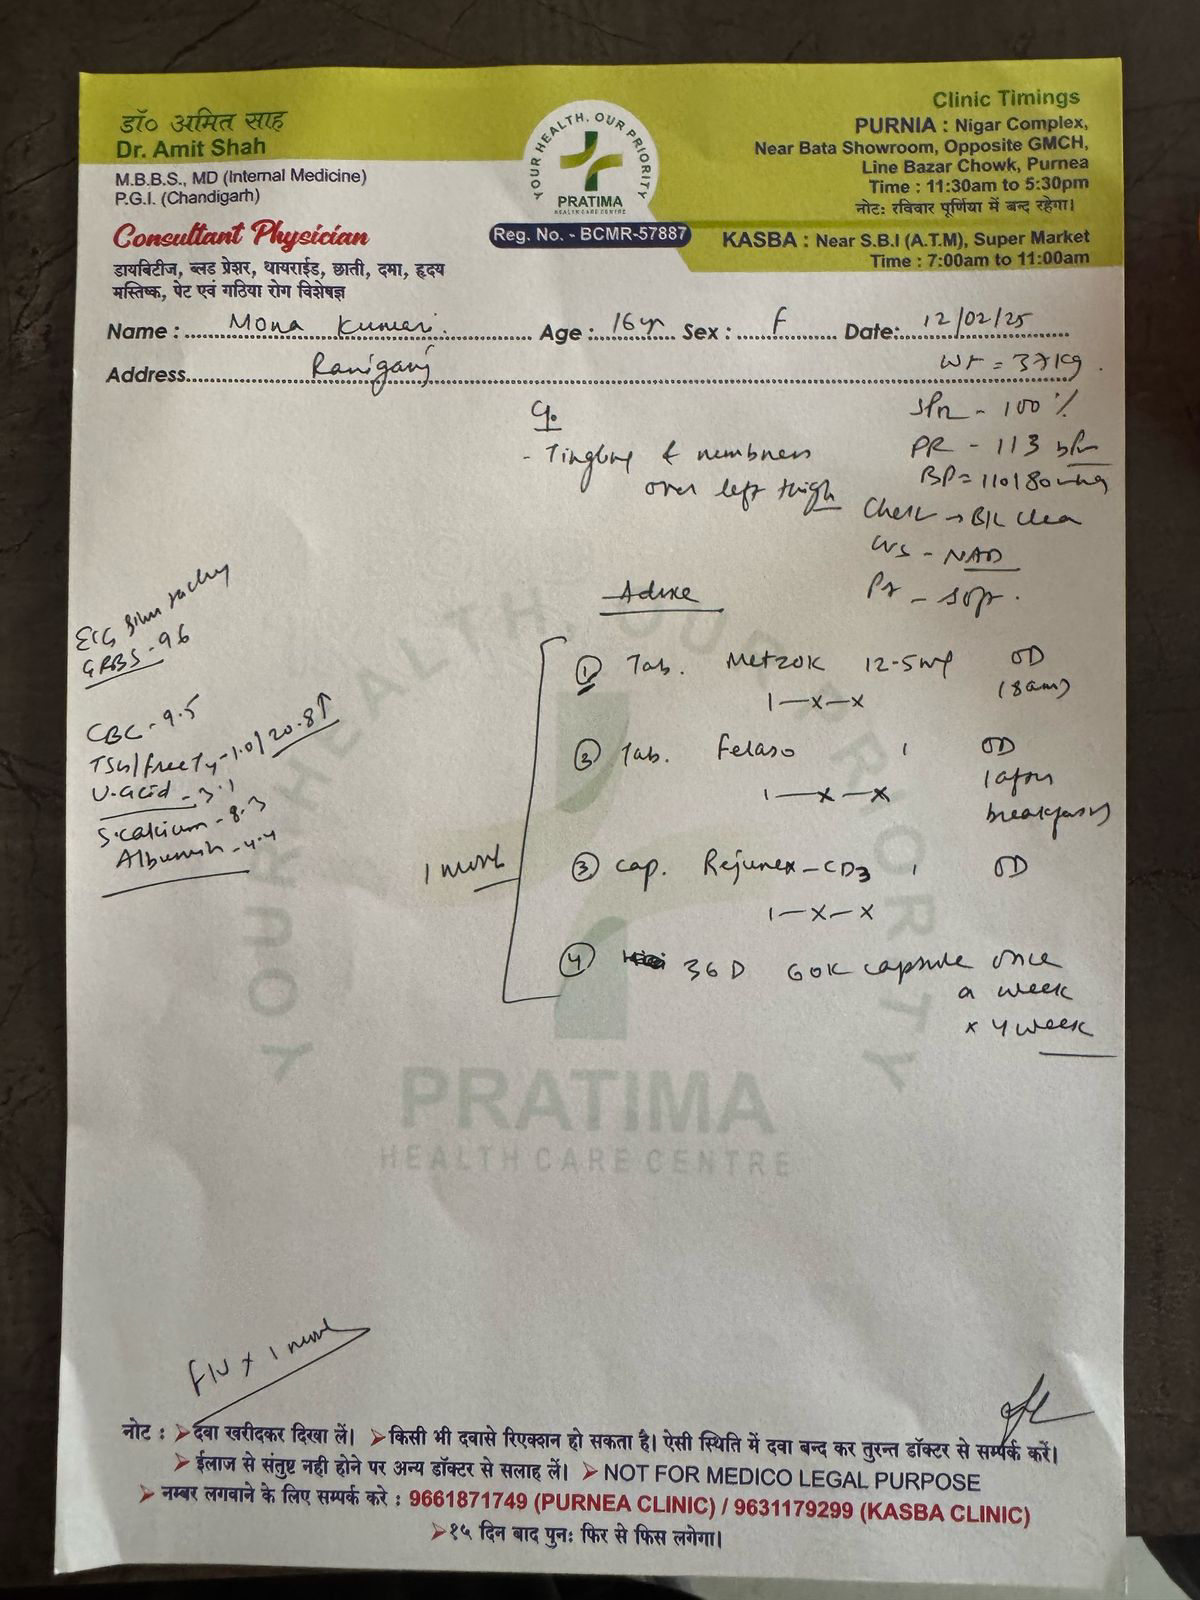 डॉ० अमित साह
Dr. Amit Shah
M.B.B.S., MD (Internal Medicine)
P.G.I. (Chandigarh)
Consultant Physician
डायबिटीज, ब्लड प्रेशर, थायराईड, छाती, दमा, हृदय
मस्तिष्क, पेट एवं गठिया रोग विशेषज्ञ
YOUR HEALTH, OUR PRIORITY
PRATIMA
HEALTH CARE CENTRE
Reg. No. - BCMR-57887
Clinic Timings
PURNIA : Nigar Complex,
Near Bata Showroom, Opposite GMCH,
Line Bazar Chowk, Purnea
Time : 11:30am to 5:30pm
नोटः रविवार पूर्णिया में बन्द रहेगा।
KASBA : Near S.B.I (A.T.M), Super Market
Time : 7:00am to 11:00am
Name : Mona Kumari Age : 16yr Sex : F Date: 12/02/25
Address Raniganj
Wt = 37kg
- 100 %
PR - 113 bpm
BP = 110/80 mmHg
Chest → B/L clear
CVS - NAD
P/A - soft
- Tingling & numbness
over left thigh
ECG
GRBS - 96
CBC - 9.5
TSH/free T4 - 1.0/20.8↑
U.acid - 3.1
S.calcium - 8.3
Albumin - 4.4
Advice
① Tab. Metzok 12.5mg OD
1—x—x (8am)
② Tab. Felaso 1 OD
1—x—x (after
breakfast)
③ Cap. Rejunex-CD3 1 OD
1—x—x
④ 36D 60K capsule once
a week
x 4 week
1 month
YOUR HEALTH, OUR PRIORITY
PRATIMA
HEALTH CARE CENTRE
F/U x 1 month
नोट : ➤दवा खरीदकर दिखा लें। ➤किसी भी दवासे रिएक्शन हो सकता है। ऐसी स्थिति में दवा बन्द कर तुरन्त डॉक्टर से सम्पर्क करें।
➤ईलाज से संतुष्ट नही होने पर अन्य डॉक्टर से सलाह लें। ➤NOT FOR MEDICO LEGAL PURPOSE
➤नम्बर लगवाने के लिए सम्पर्क करे : 9661871749 (PURNEA CLINIC) / 9631179299 (KASBA CLINIC)
➤१५ दिन बाद पुनः फिर से फिस लगेगा।